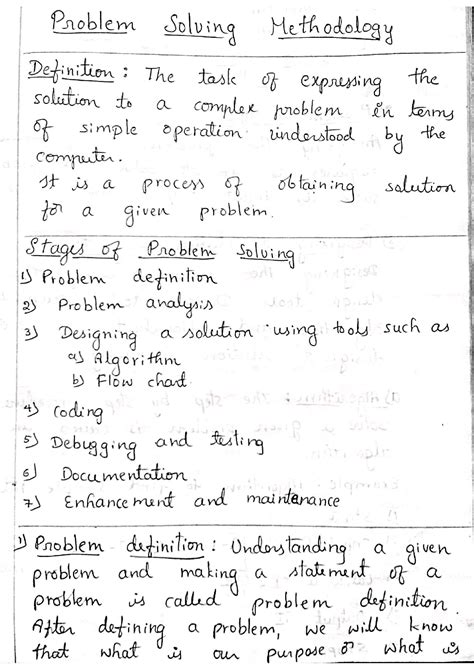 Problem Solving Methodology
Definition : The task of expressing the
solution to a complex problem in terms
of simple operation understood by the
computer.
It is a process of obtaining solution
for a given problem.
Stages of Problem Solving
1) Problem definition
2) Problem analysis
3) Designing a solution using tools such as
a) Algorithm
b) Flow chart
4) Coding
5) Debugging and testing
6) Documentation
7) Enhancement and maintenance
1) Problem definition : Understanding a given
problem and making a statement of a
problem is called problem definition.
After defining a problem, we will know
that what is our purpose & what is